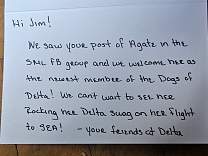 Hi Jim!
We saw your post of Agate in the
SNL FB group and we welcome her as
the newest member of the Dogs of
Delta! We cant wait to see her
Rocking her Delta swag on her flight
to SEA! - your friends at Delta